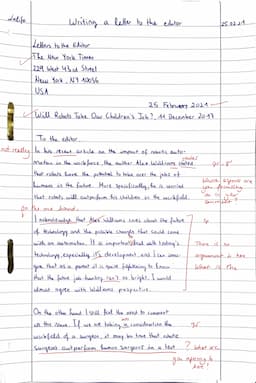 Writing a letter to the editor
25.02.21
Letters to the Editor
The New York Times
229 West 43rd Street
New York, NY 10036
USA
25 February 2021
Will Robots Take Our Children's Job?, 11 December 2017
To the editor
not really
In his recent article on the impact of robotic auto-
mation in the workforce, the author Alex Williams
that robots have the potential to take over the jobs of
humans in the future. More specifically, he is worried
that robots will outperform his children in the workfield.
On the one hand,
I Alex Williams cares about the future
of technology and the possible changes that could come
with an automation. It is important and with today's
technology, especially it's development and I can ima-
gine that as a parent it is quite frightening to know
that the future job hunting isn't as bright. I would
almost agree with Williams perspective.
There is no
What is this
On the other hand I still feel the need to comment
on this issue. If we are taking in consideration the
workfield of a surgeon, it may be true that robotic
surgeons outperform human surgeons in a test
? What are
you referring to
here?